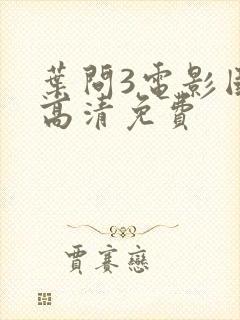 葉問3電影国
高清免費
賈賽戀